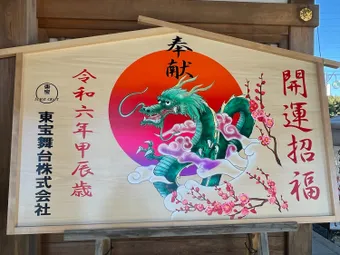 奉献
開運招福
令和六年甲辰歳
東宝舞台株式会社